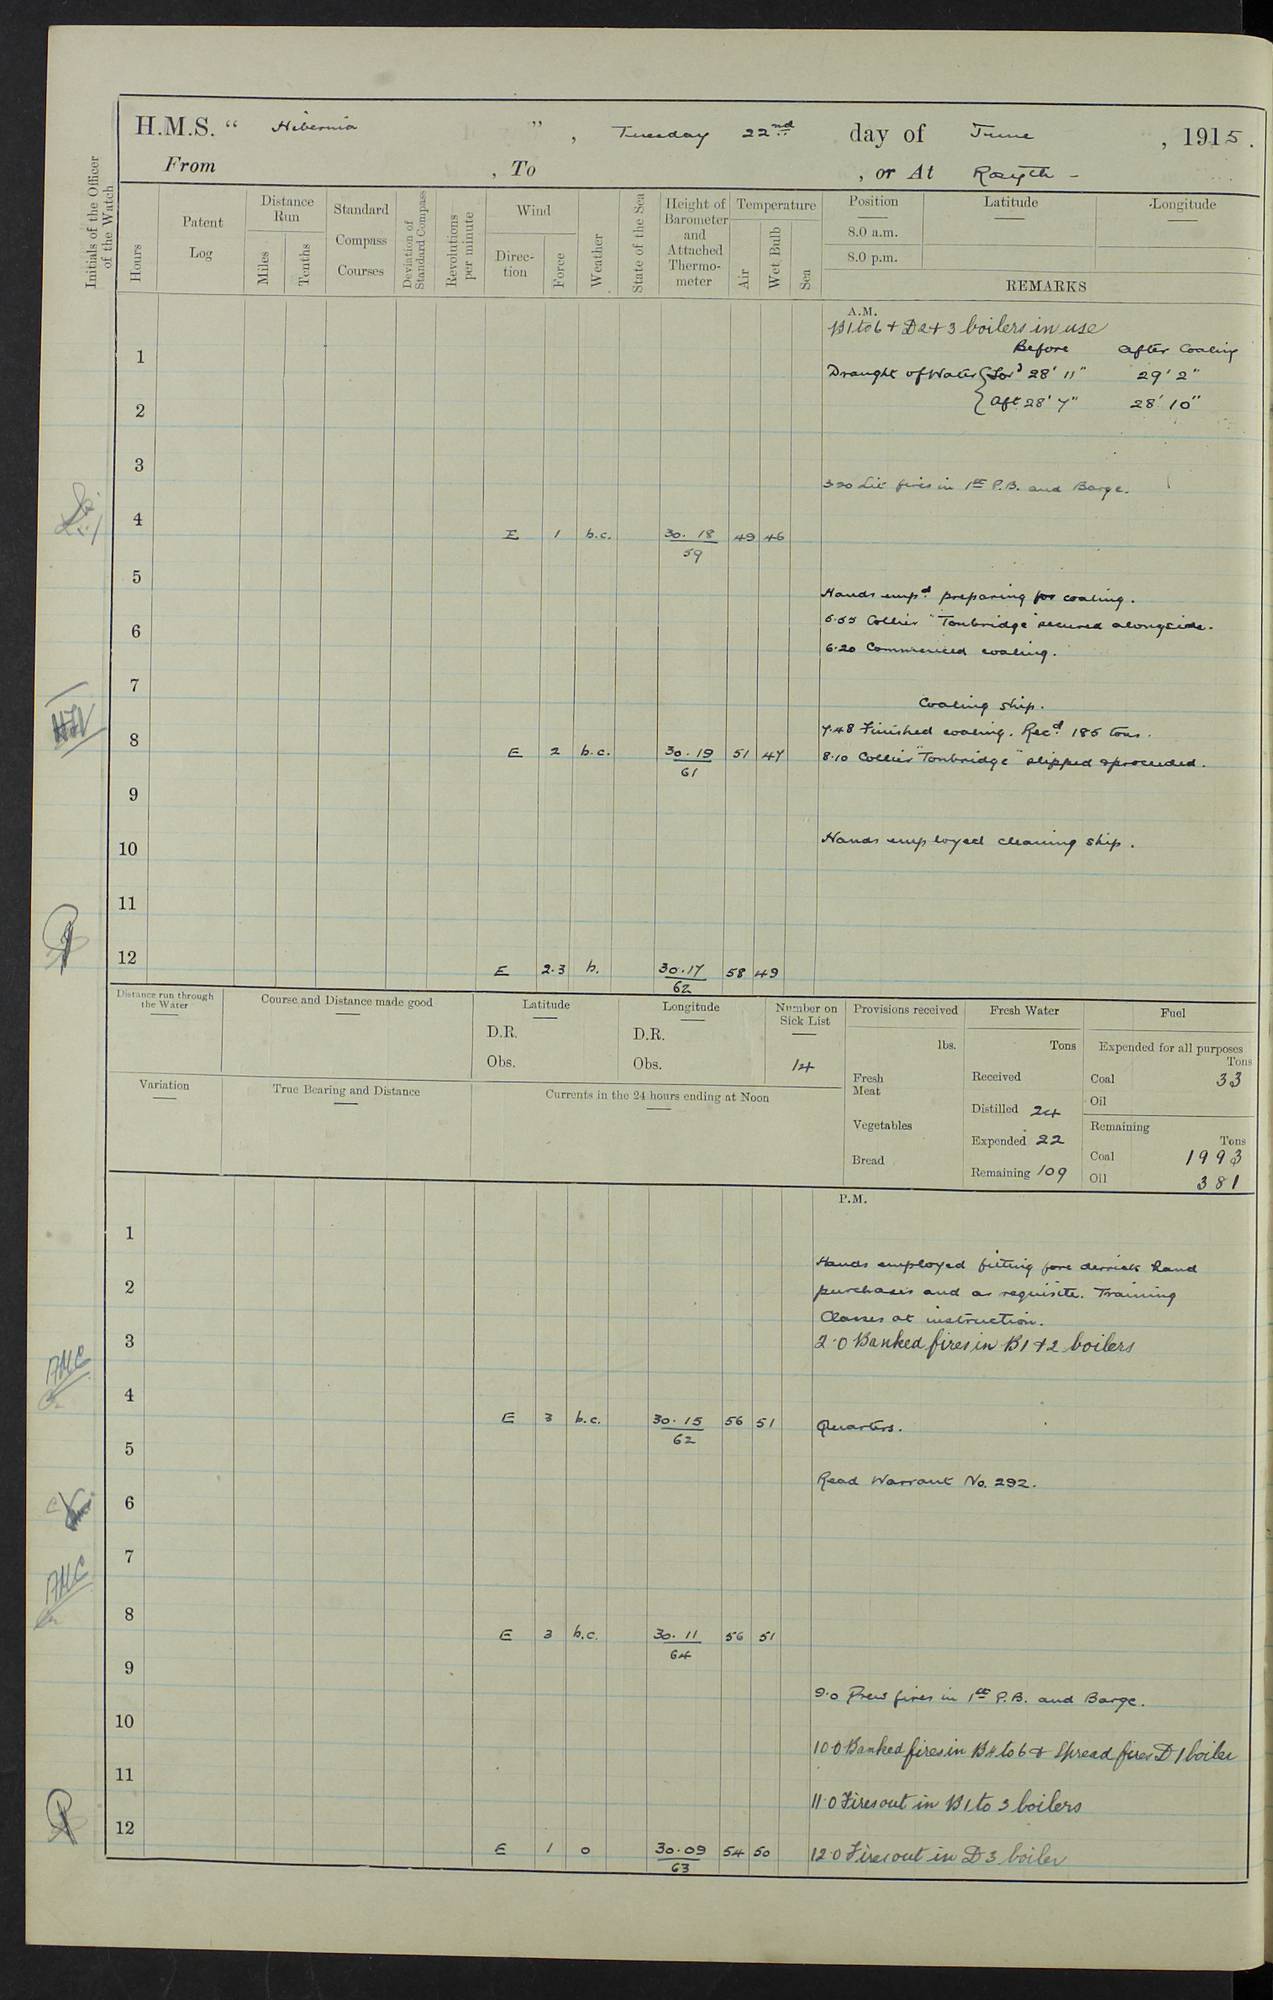 H.M.S. “ Hibernia ” , Tuesday 22nd day of June , 1915.
From , To , or At Rosyth -
Initials of the Officer of the Watch
Hours
Patent Log
Distance Run
Miles
Tenths
Standard Compass Courses
Deviation of Standard Compass
Revolutions per minute
Wind
Direction
Force
Weather
State of the Sea
Height of Barometer and Attached Thermometer
Temperature
Air
Wet Bulb
Sea
Position
Latitude
Longitude
8.0 a.m.
8.0 p.m.
REMARKS
A.M.
B1 to 6 + D2 + 3 boilers in use
Before After Coaling
1
Draught of Water { For'd 28' 11" 29' 2"
{ Aft 28' 7" 28' 10"
2
3
3.20 Lit fires in 1st P.B. and Barge.
4
E 1 b.c. 30.18 49 46
59
5
Hands emp.d preparing for coaling.
5.55 Collier "Tonbridge" secured alongside.
6
6.20 Commenced coaling.
7
Coaling ship.
7.48 Finished coaling. Rec.d 185 tons.
8
E 2 b.c. 30.19 51 47 8.10 Collier "Tonbridge" slipped & proceeded.
61
9
Hands employed cleaning ship.
10
11
12
E 2.3 b. 30.17 58 49
62
Distance run through the Water
Course and Distance made good
Latitude
D.R.
Obs.
Longitude
D.R.
Obs.
Number on Sick List
14
Provisions received
lbs.
Fresh Meat
Vegetables
Bread
Fresh Water
Tons
Received
Distilled 24
Expended 22
Remaining 109
Fuel
Expended for all purposes
Tons
Coal 33
Oil
Remaining
Tons
Coal 1993
Oil 381
Variation
True Bearing and Distance
Currents in the 24 hours ending at Noon
P.M.
1
Hands employed fitting fore derrick hand
2
purchases and as requisite. Training
Classes at instruction.
3
2.0 Banked fires in B1 + 2 boilers
4
E 3 b.c. 30.15 56 51 Quarters.
62
5
Read Warrant No. 292.
6
7
8
E 3 b.c. 30.11 56 51
64
9
9.0 Drew fires in 1st P.B. and Barge.
10
10.0 Banked fires in B4 to 6 + Spread fires D1 boiler
11
11.0 Fires out in B1 to 3 boilers
12
E 1 o 30.09 54 50 12.0 Fires out in D3 boiler
63